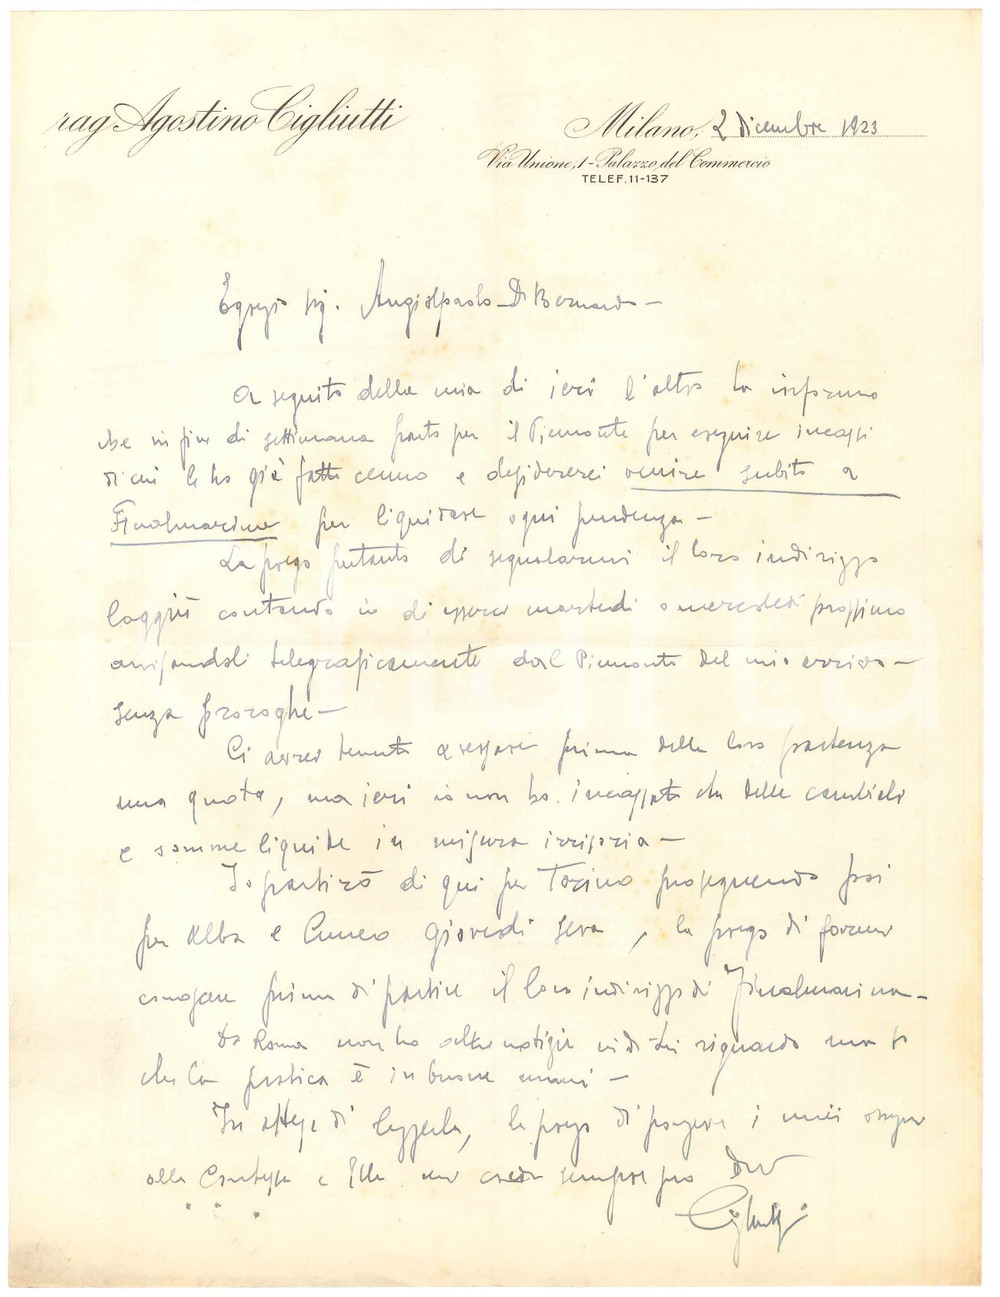 rag Agostino Cigliutti
Milano, 2 dicembre 1923
Via Unione, 1 - Palazzo del Commercio
TELEF. 11-137
Egregio Sig. Angiolpaolo Di Bernardo -
A seguito della mia di ieri l'altro la informo
che in fine di settimana parto per il Piemonte per eseguire incassi
di cui le ho già fatto cenno e desidererei venire subito a
Finalmarina per liquidare ogni pendenza -
La prego pertanto di segnalarmi il loro indirizzo
laggiù contando io di esserci martedì o mercoledì prossimo
avvisandoli telegraficamente dal Piemonte del mio arrivo -
senza proroghe -
Ci avrei tenuto a versare prima della loro partenza
una quota, ma ieri io non ho incassato che delle cambiali
e somme liquide in misura irrisoria -
Io partirò di qui per Torino proseguendo poi
per Alba e Cuneo giovedì sera, la prego di farmi
conoscere prima di partire il loro indirizzo di Finalmarina -
Da Roma non ho altre notizie nei di Lei riguardo ma so
che la pratica è in buone mani -
In attesa di leggerla, la prego di porgere i miei ossequi
alla Contessa e Ella mi creda sempre suo
Cigliutti